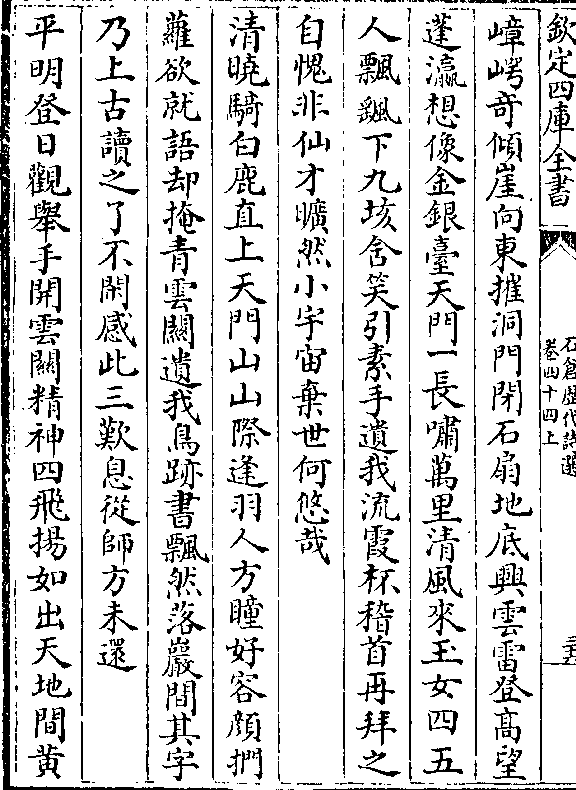 欽定四庫全書
石倉歷代詩選
卷四十四上
嶂崿奇傾崖向東摧洞門閉石扇地底興雲雷登高望
蓬瀛想像金銀臺天門一長嘯萬里清風來玉女四五
人飄颻下九垓含笑引素手遺我流霞杯稽首再拜之
自愧非仙才曠然小宇宙棄世何悠哉
清曉騎白鹿直上天門山山際逢羽人方瞳好容顏捫
蘿欲就語却掩青雲關遺我鳥跡書飄然落巖間其字
乃上古讀之了不閑感此三歎息從師方未還
平明登日觀舉手開雲關精神四飛揚如出天地間黃